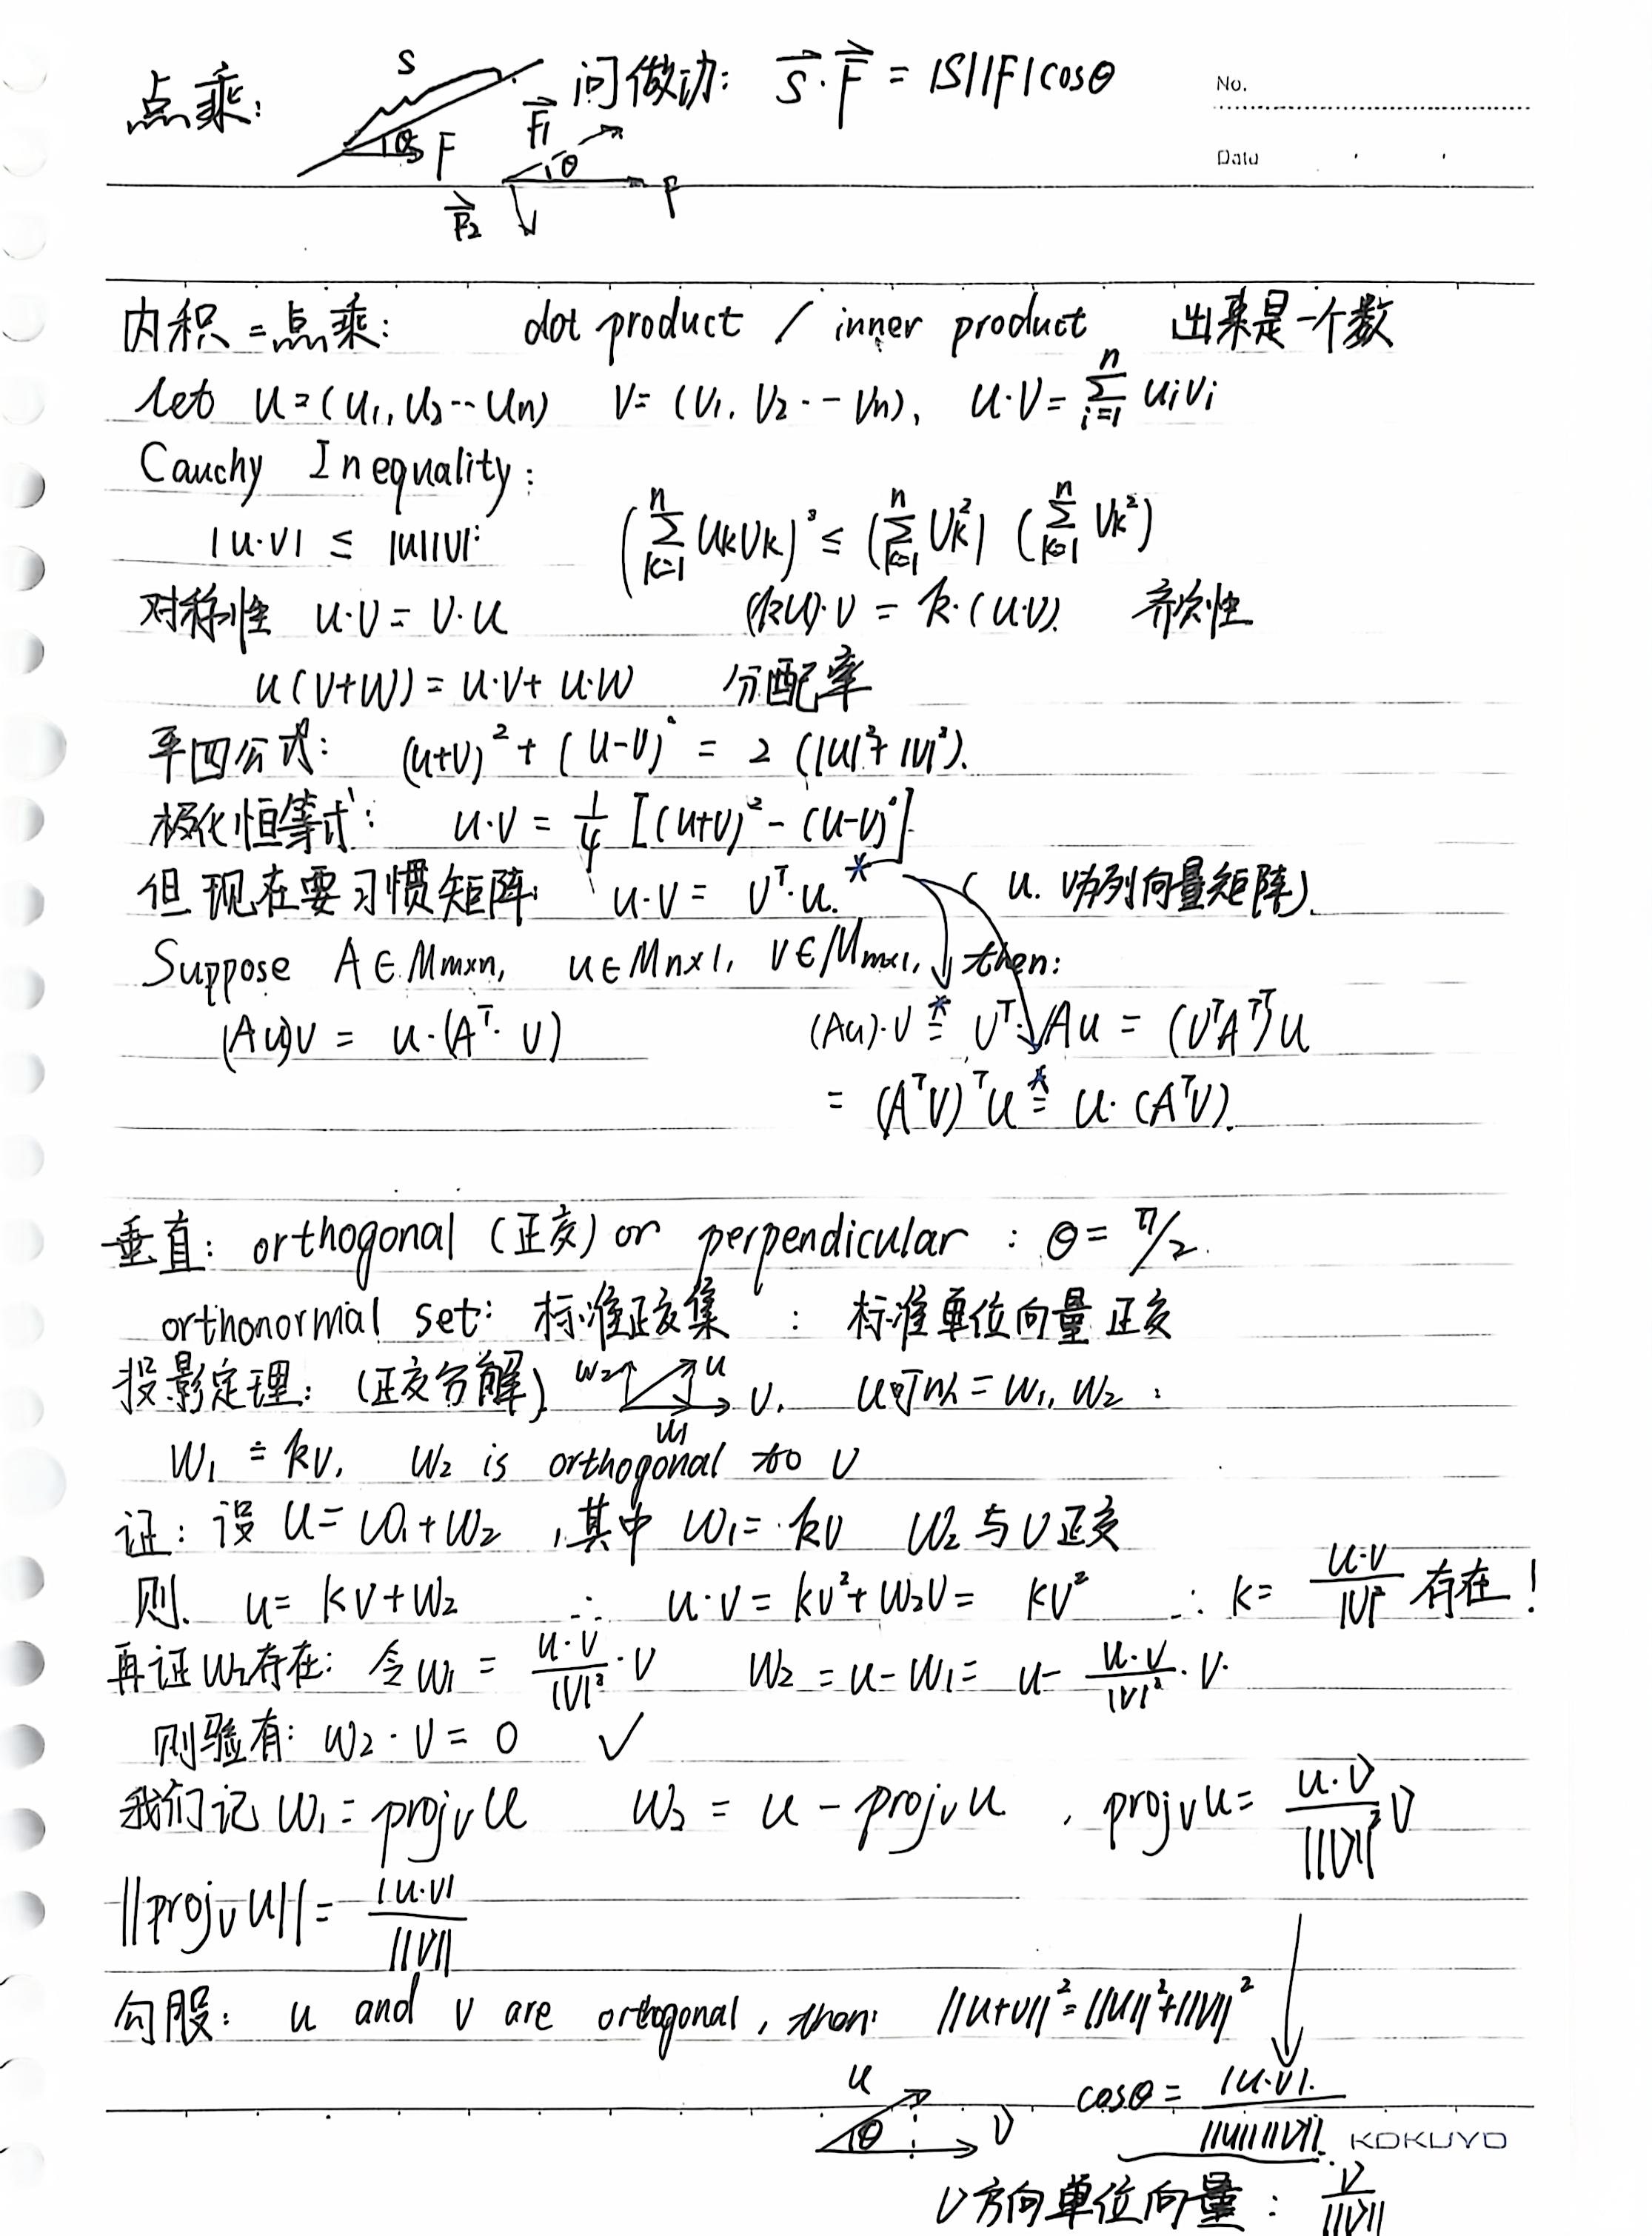 点乘: S θ F 问做功: S·F = |S||F|cosθ
No.
F₁ θ F
Date
F₂
内积=点乘: dot product / inner product 出来是一个数
let u=(u₁,u₂--un) v=(v₁,v₂--vn), u·v=∑ᵢ₌₁ⁿ uᵢvᵢ
Cauchy Inequality:
|u·v| ≤ |u||v| (∑ₖ₌₁ⁿ uₖvₖ)² ≤ (∑ₖ₌₁ⁿ uₖ²) (∑ₖ₌₁ⁿ vₖ²)
对称性 u·v = v·u (ku)·v = k·(u·v). 齐次性
u(v+w) = u·v + u·w 分配率
平四公式: (u+v)² + (u-v)² = 2 (|u|²+|v|²).
极化恒等式: u·v = 1/4 [(u+v)² - (u-v)²]
但现在要习惯矩阵: u·v = vᵀ·u. * (u. v为列向量矩阵).
Suppose A∈Mm×n, u∈Mn×1, v∈Mm×1, then:
(Au)v = u·(Aᵀ·v) (Au)·v =* vᵀ·Au = (vᵀAᵀᵀ)u
= (Aᵀv)ᵀu =* u·(Aᵀv).
垂直: orthogonal (正交) or perpendicular : θ = π/2.
orthonormal set: 标准正交集 : 标准单位向量正交
投影定理: (正交分解) w₂ u v. w₁ u可以=w₁, w₂ :
w₁ = kv, w₂ is orthogonal to v
证: 设 u = w₁+w₂ ,其中 w₁ = kv w₂与v正交
则. u = kv+w₂ ∴ u·v = kv²+w₂v = kv² ∴ k = u·v/|v|² 存在!
再证w₂存在: 令w₁ = u·v/|v|² ·v w₂ = u-w₁ = u- u·v/|v|² ·v.
则验有: w₂·v = 0 ✓
我们记 w₁ = projᵥu w₂ = u - projᵥu , projᵥu = u·v/||v||² v
||projᵥu|| = |u·v|/||v||
勾股: u and v are orthogonal, then: ||u+v||²=||u||²+||v||²
u θ v cosθ = |u·v|/||u||||v||.
KOKUYO
v方向单位向量: v/||v||